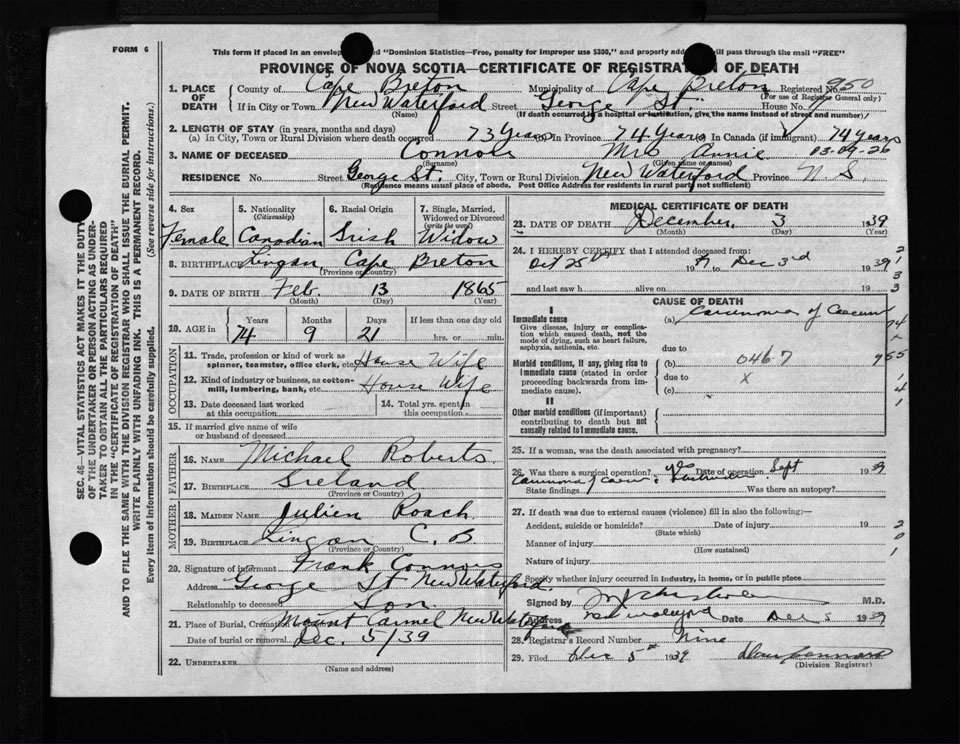 FORM 6
This form if placed in an envelope "Dominion Statistics—Free, penalty for improper use $300," and properly will pass through the mail "FREE"
PROVINCE OF NOVA SCOTIA—CERTIFICATE OF REGISTRATION OF DEATH
1. PLACE OF DEATH County of Cape Breton Municipality of Cape Breton Registered No. 950
(For use of Registrar General only)
If in City or Town New Waterford Street George St. House No.
(Name) (If death occurred in a hospital or institution, give the name instead of street and number)
2. LENGTH OF STAY (in years, months and days)
(a) In City, Town or Rural Division where death occurred 73 Years (b) In Province 74 Years (c) In Canada (if immigrant) 74 years
3. NAME OF DECEASED Connors Mrs Annie 03-09-26
(Surname) (Given name or names)
RESIDENCE No. Street George St. City, Town or Rural Division New Waterford Province N S.
(Residence means usual place of abode. Post Office Address for residents in rural part not sufficient)
SEC. 46—VITAL STATISTICS ACT MAKES IT THE DUTY
OF THE UNDERTAKER OR PERSON ACTING AS UNDER-
TAKER TO OBTAIN ALL THE PARTICULARS REQUIRED
IN THE "CERTIFICATE OF REGISTRATION OF DEATH"
AND TO FILE THE SAME WITH THE DIVISION REGISTRAR WHO SHALL ISSUE THE BURIAL PERMIT.
WRITE PLAINLY WITH UNFADING INK. THIS IS A PERMANENT RECORD.
Every item of information should be carefully supplied. (See reverse side for instructions.)
4. Sex 5. Nationality (Citizenship) 6. Racial Origin 7. Single, Married, Widowed or Divorced (write the word)
Female Canadian Irish Widow
8. BIRTHPLACE Lingan Cape Breton
(Province or Country)
9. DATE OF BIRTH Feb. 13 1865
(Month) (Day) (Year)
10. AGE in Years Months Days If less than one day old
74 9 21 hrs. or min.
OCCUPATION
11. Trade, profession or kind of work as spinner, teamster, office clerk, etc. House Wife
12. Kind of industry or business, as cotton-mill, lumbering, bank, etc. House Wife
13. Date deceased last worked at this occupation
14. Total yrs. spent in this occupation
15. If married give name of wife or husband of deceased
FATHER
16. NAME Michael Roberts
17. BIRTHPLACE Ireland
(Province or Country)
MOTHER
18. MAIDEN NAME Julien Roach
19. BIRTHPLACE Lingan C. B
(Province or Country)
20. Signature of informant Frank Connors
Address George St New Waterford.
Relationship to deceased Son
21. Place of Burial, Cremation Mount Carmel New Waterford
Date of burial or removal Dec. 5/39
22. UNDERTAKER
(Name and address)
MEDICAL CERTIFICATE OF DEATH
23. DATE OF DEATH December, 3 1939
(Month) (Day) (Year)
24. I HEREBY CERTIFY that I attended deceased from:
Oct 25th 1939 to Dec 3rd 1939
and last saw h alive on 19
CAUSE OF DEATH
I
Immediate cause (a) Carcinoma of Caecum
Give disease, injury or complication which caused death, not the mode of dying, such as heart failure, asphyxia, asthenia, etc.
due to
Morbid conditions, if any, giving rise to immediate cause (stated in order proceeding backwards from immediate cause).
(b) 046.7
due to X
(c)
II
Other morbid conditions (if important) contributing to death but not causally related to immediate cause.
25. If a woman, was the death associated with pregnancy?
26. Was there a surgical operation? yes Date of operation Sept 1939
State findings Carcinoma of Caecum Was there an autopsy?
27. If death was due to external causes (violence) fill in also the following:—
Accident, suicide or homicide? Date of injury 19
(State which)
Manner of injury
(How sustained)
Nature of injury
Specify whether injury occurred in industry, in home, or in public place
Signed by M.D.
Address New Waterford Date Dec 5 1939
28. Registrar's Record Number Nine
29. Filed Dec 5th 1939
(Division Registrar)